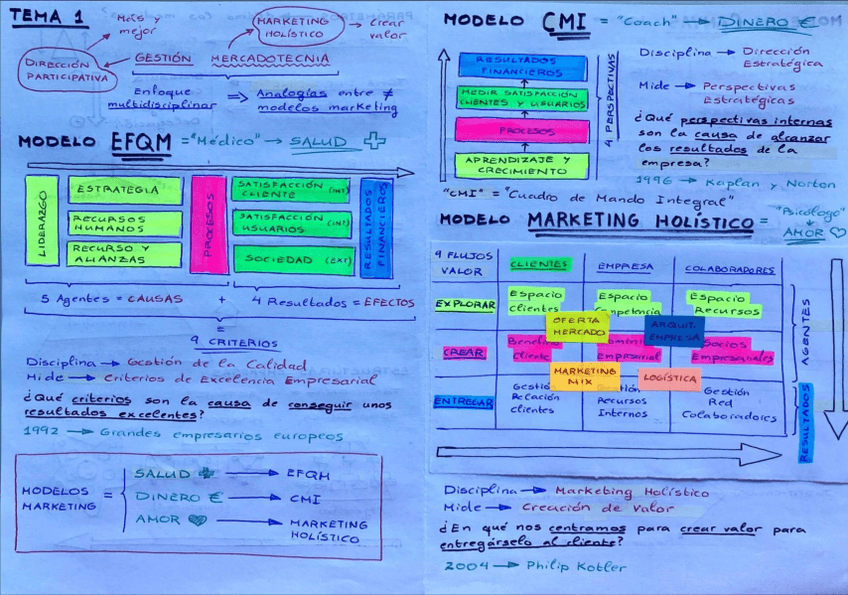 TEMA 1
Más y mejor
MARKETING HOLÍSTICO
Crear valor
DIRECCIÓN PARTICIPATIVA
GESTIÓN MERCADOTECNIA
Enfoque multidisciplinar
Analogías entre ≠ modelos marketing
MODELO EFQM = "Médico" → SALUD
LIDERAZGO
ESTRATEGIA
RECURSOS HUMANOS
RECURSO Y ALIANZAS
PROCESOS
SATISFACCIÓN CLIENTE (INT)
SATISFACCIÓN USUARIOS (INT)
SOCIEDAD (EXT)
RESULTADOS FINANCIEROS
5 Agentes = CAUSAS + 4 Resultados = EFECTOS
=
9 CRITERIOS
Disciplina → Gestión de la Calidad
Mide → Criterios de Excelencia Empresarial
¿Qué criterios son la causa de conseguir unos
resultados excelentes?
1992 → Grandes empresarios europeos
MODELOS MARKETING =
SALUD → EFQM
DINERO € → CMI
AMOR → MARKETING HOLÍSTICO
MODELO CMI = "Coach" → DINERO €
RESULTADOS FINANCIEROS
MEDIR SATISFACCIÓN CLIENTES Y USUARIOS
PROCESOS
APRENDIZAJE Y CRECIMIENTO
4 PERSPECTIVAS
Disciplina → Dirección Estratégica
Mide → Perspectivas Estratégicas
¿Qué perspectivas internas
son la causa de alcanzar
los resultados de la
empresa?
1996 → Kaplan y Norton
"CMI" = "Cuadro de Mando Integral"
MODELO MARKETING HOLÍSTICO = "Psicólogo" AMOR
9 FLUJOS VALOR
CLIENTES
EMPRESA
COLABORADORES
EXPLORAR
Espacio clientes
Espacio
Espacio Recursos
OFERTA MERCADO
ARQUIT. EMPRESA
CREAR
cliente
Empresarial
Socios Empresariales
MARKETING MIX
LOGÍSTICA
ENTREGAR
Relación clientes
Recursos Internos
Gestión Red Colaboradores
AGENTES
RESULTADOS
Disciplina → Marketing Holístico
Mide → Creación de Valor
¿En qué nos centramos para crear valor para
entregárselo al cliente?
2004 → Philip Kotler